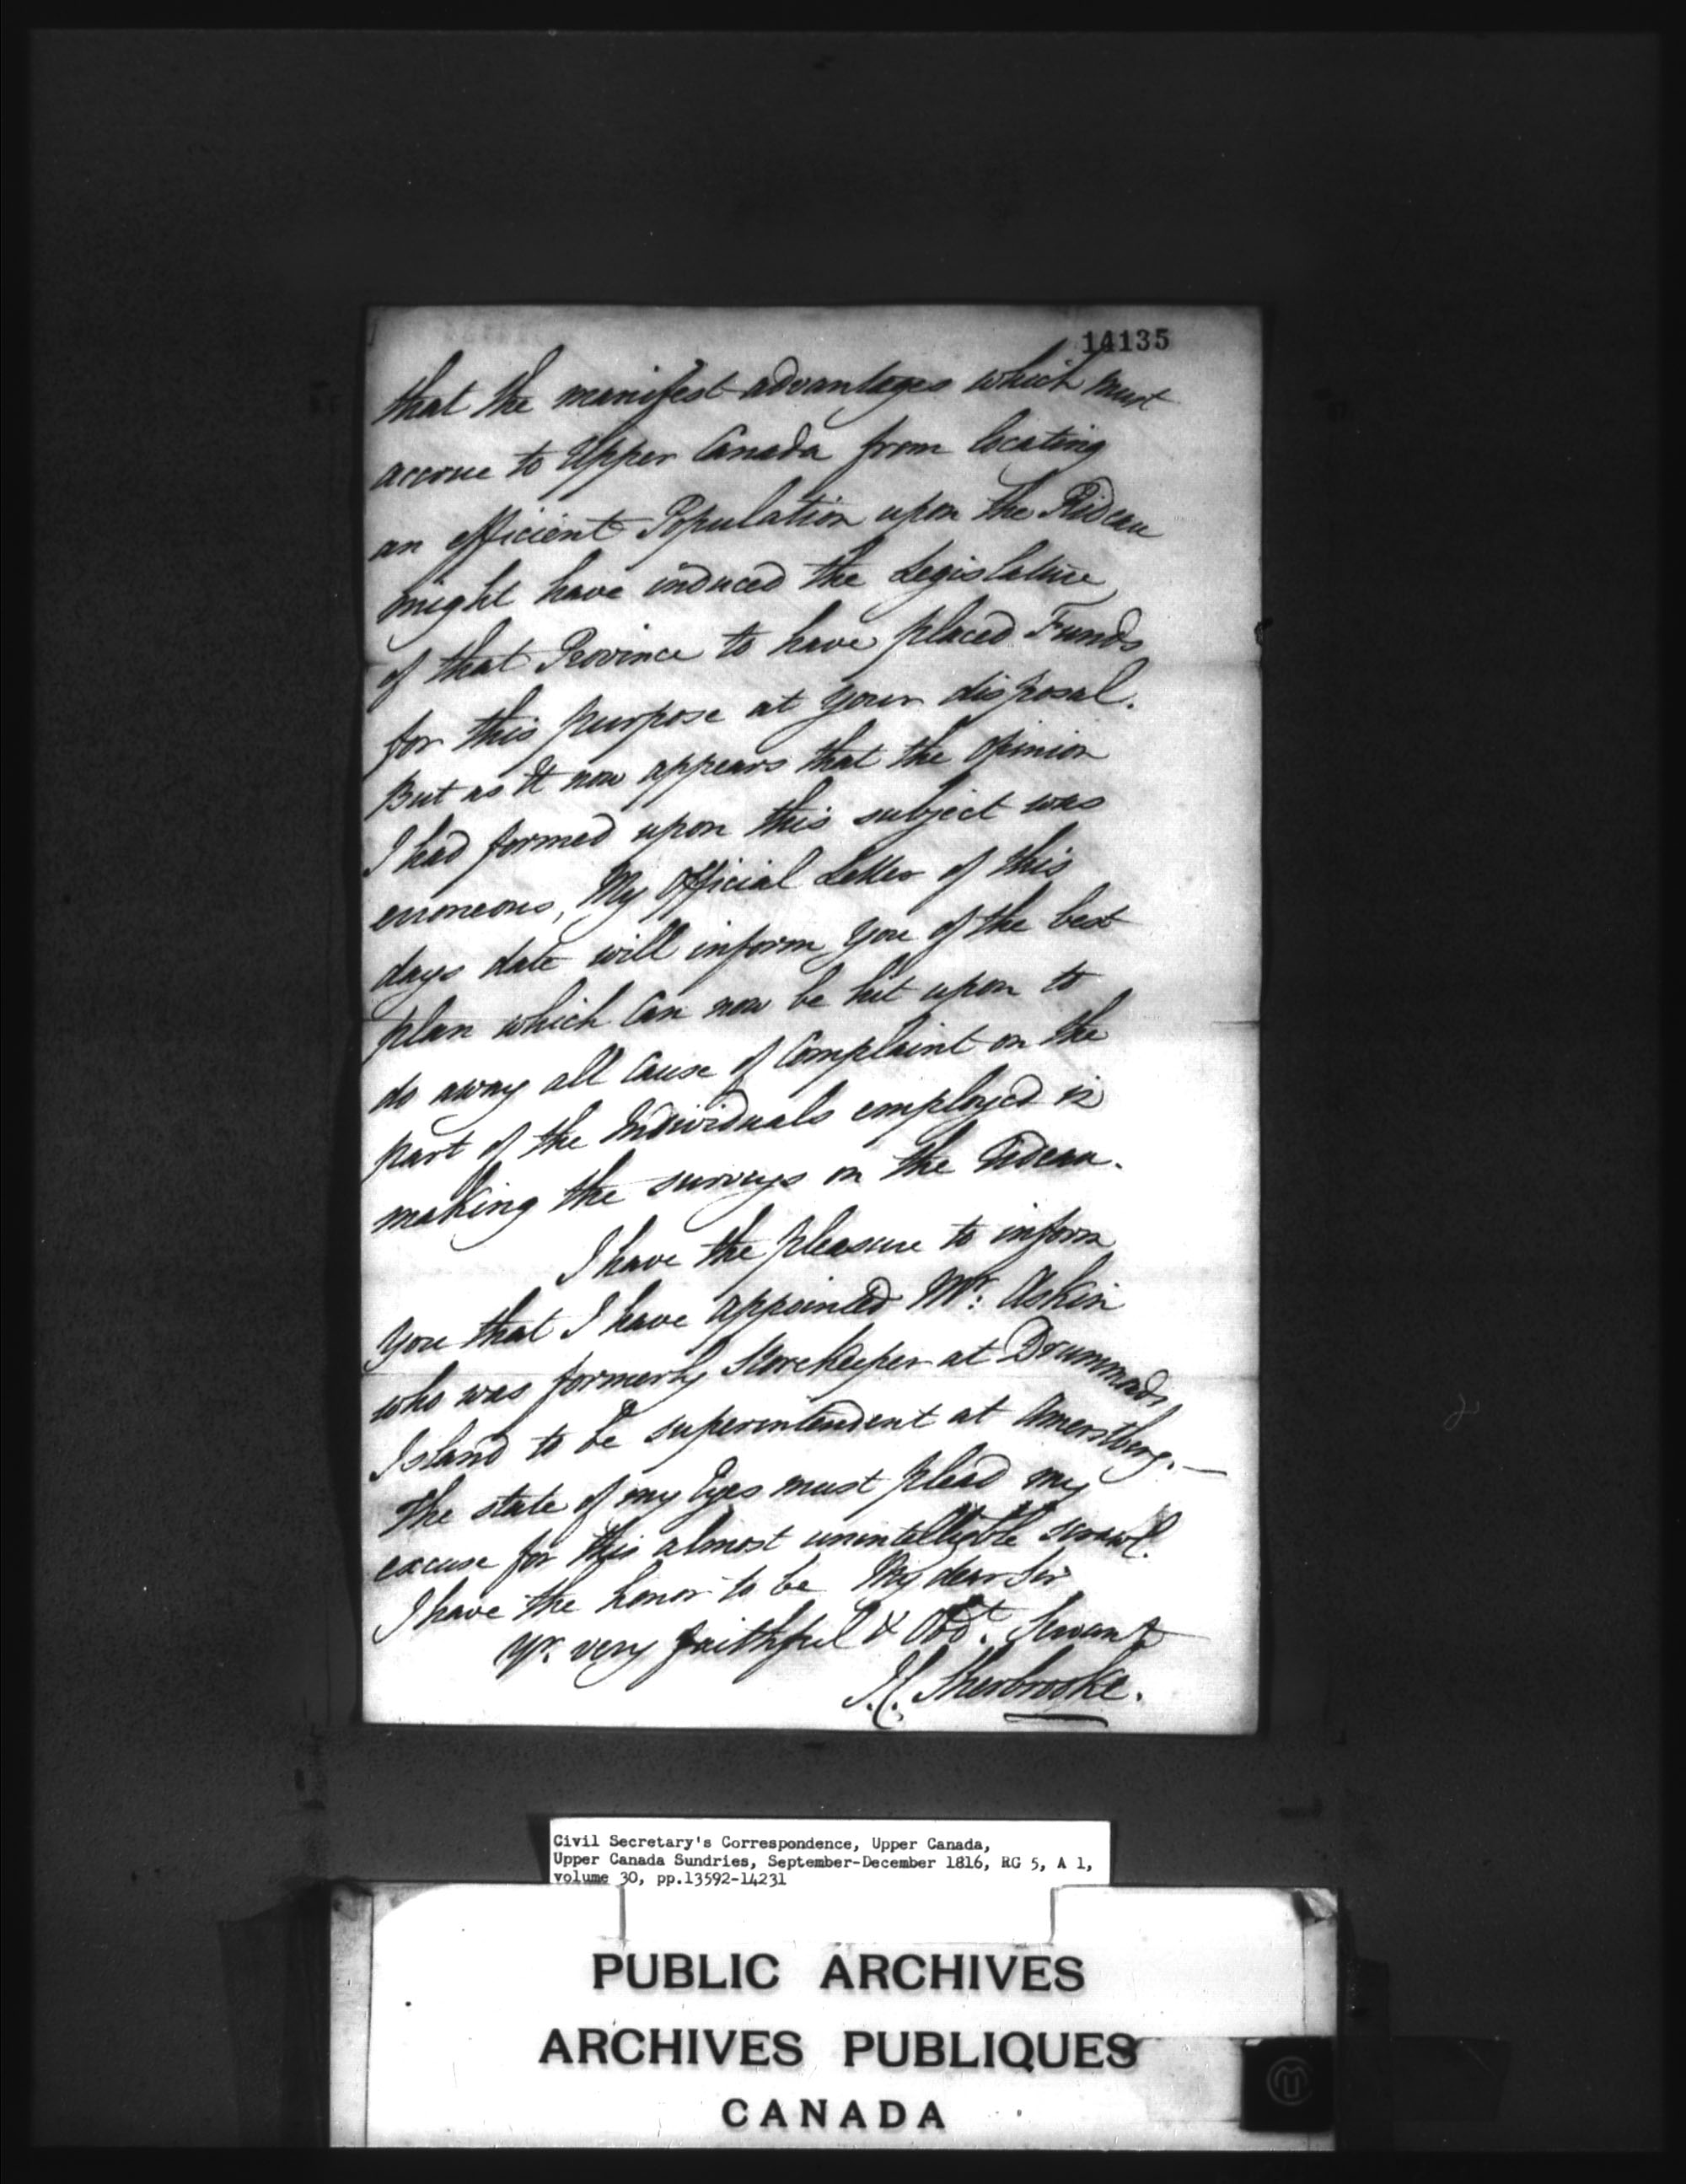 14135
that the manifest advantages which must
accrue to Upper Canada from locating
an efficient Population upon the Rideau
might have induced the Legislature
of that Province to have placed Funds
for this purpose at your disposal.
But as It now appears that the opinion
I had formed upon this subject was
erroneous, My Official Letter of this
days date will inform you of the best
plan which Can now be hit upon to
do away all Cause of Complaint on the
part of the Individuals employed in
making the surveys on the Rideau.
I have the pleasure to inform
you that I have appointed Mr: Askin
who was formerly Storekeeper at Drummonds
Island to be superintendent at Amerstberg.—
The state of my Eyes must plead my
excuse for this almost unintelligible scrawl.
I have the honor to be My dear Sir
Yr. very faithful & Obdt. Servant
J.C. Sherbrooke.
Civil Secretary's Correspondence, Upper Canada,
Upper Canada Sundries, September-December 1816, RG 5, A 1,
volume 30, pp.13592-14231
PUBLIC ARCHIVES
ARCHIVES PUBLIQUES
CANADA